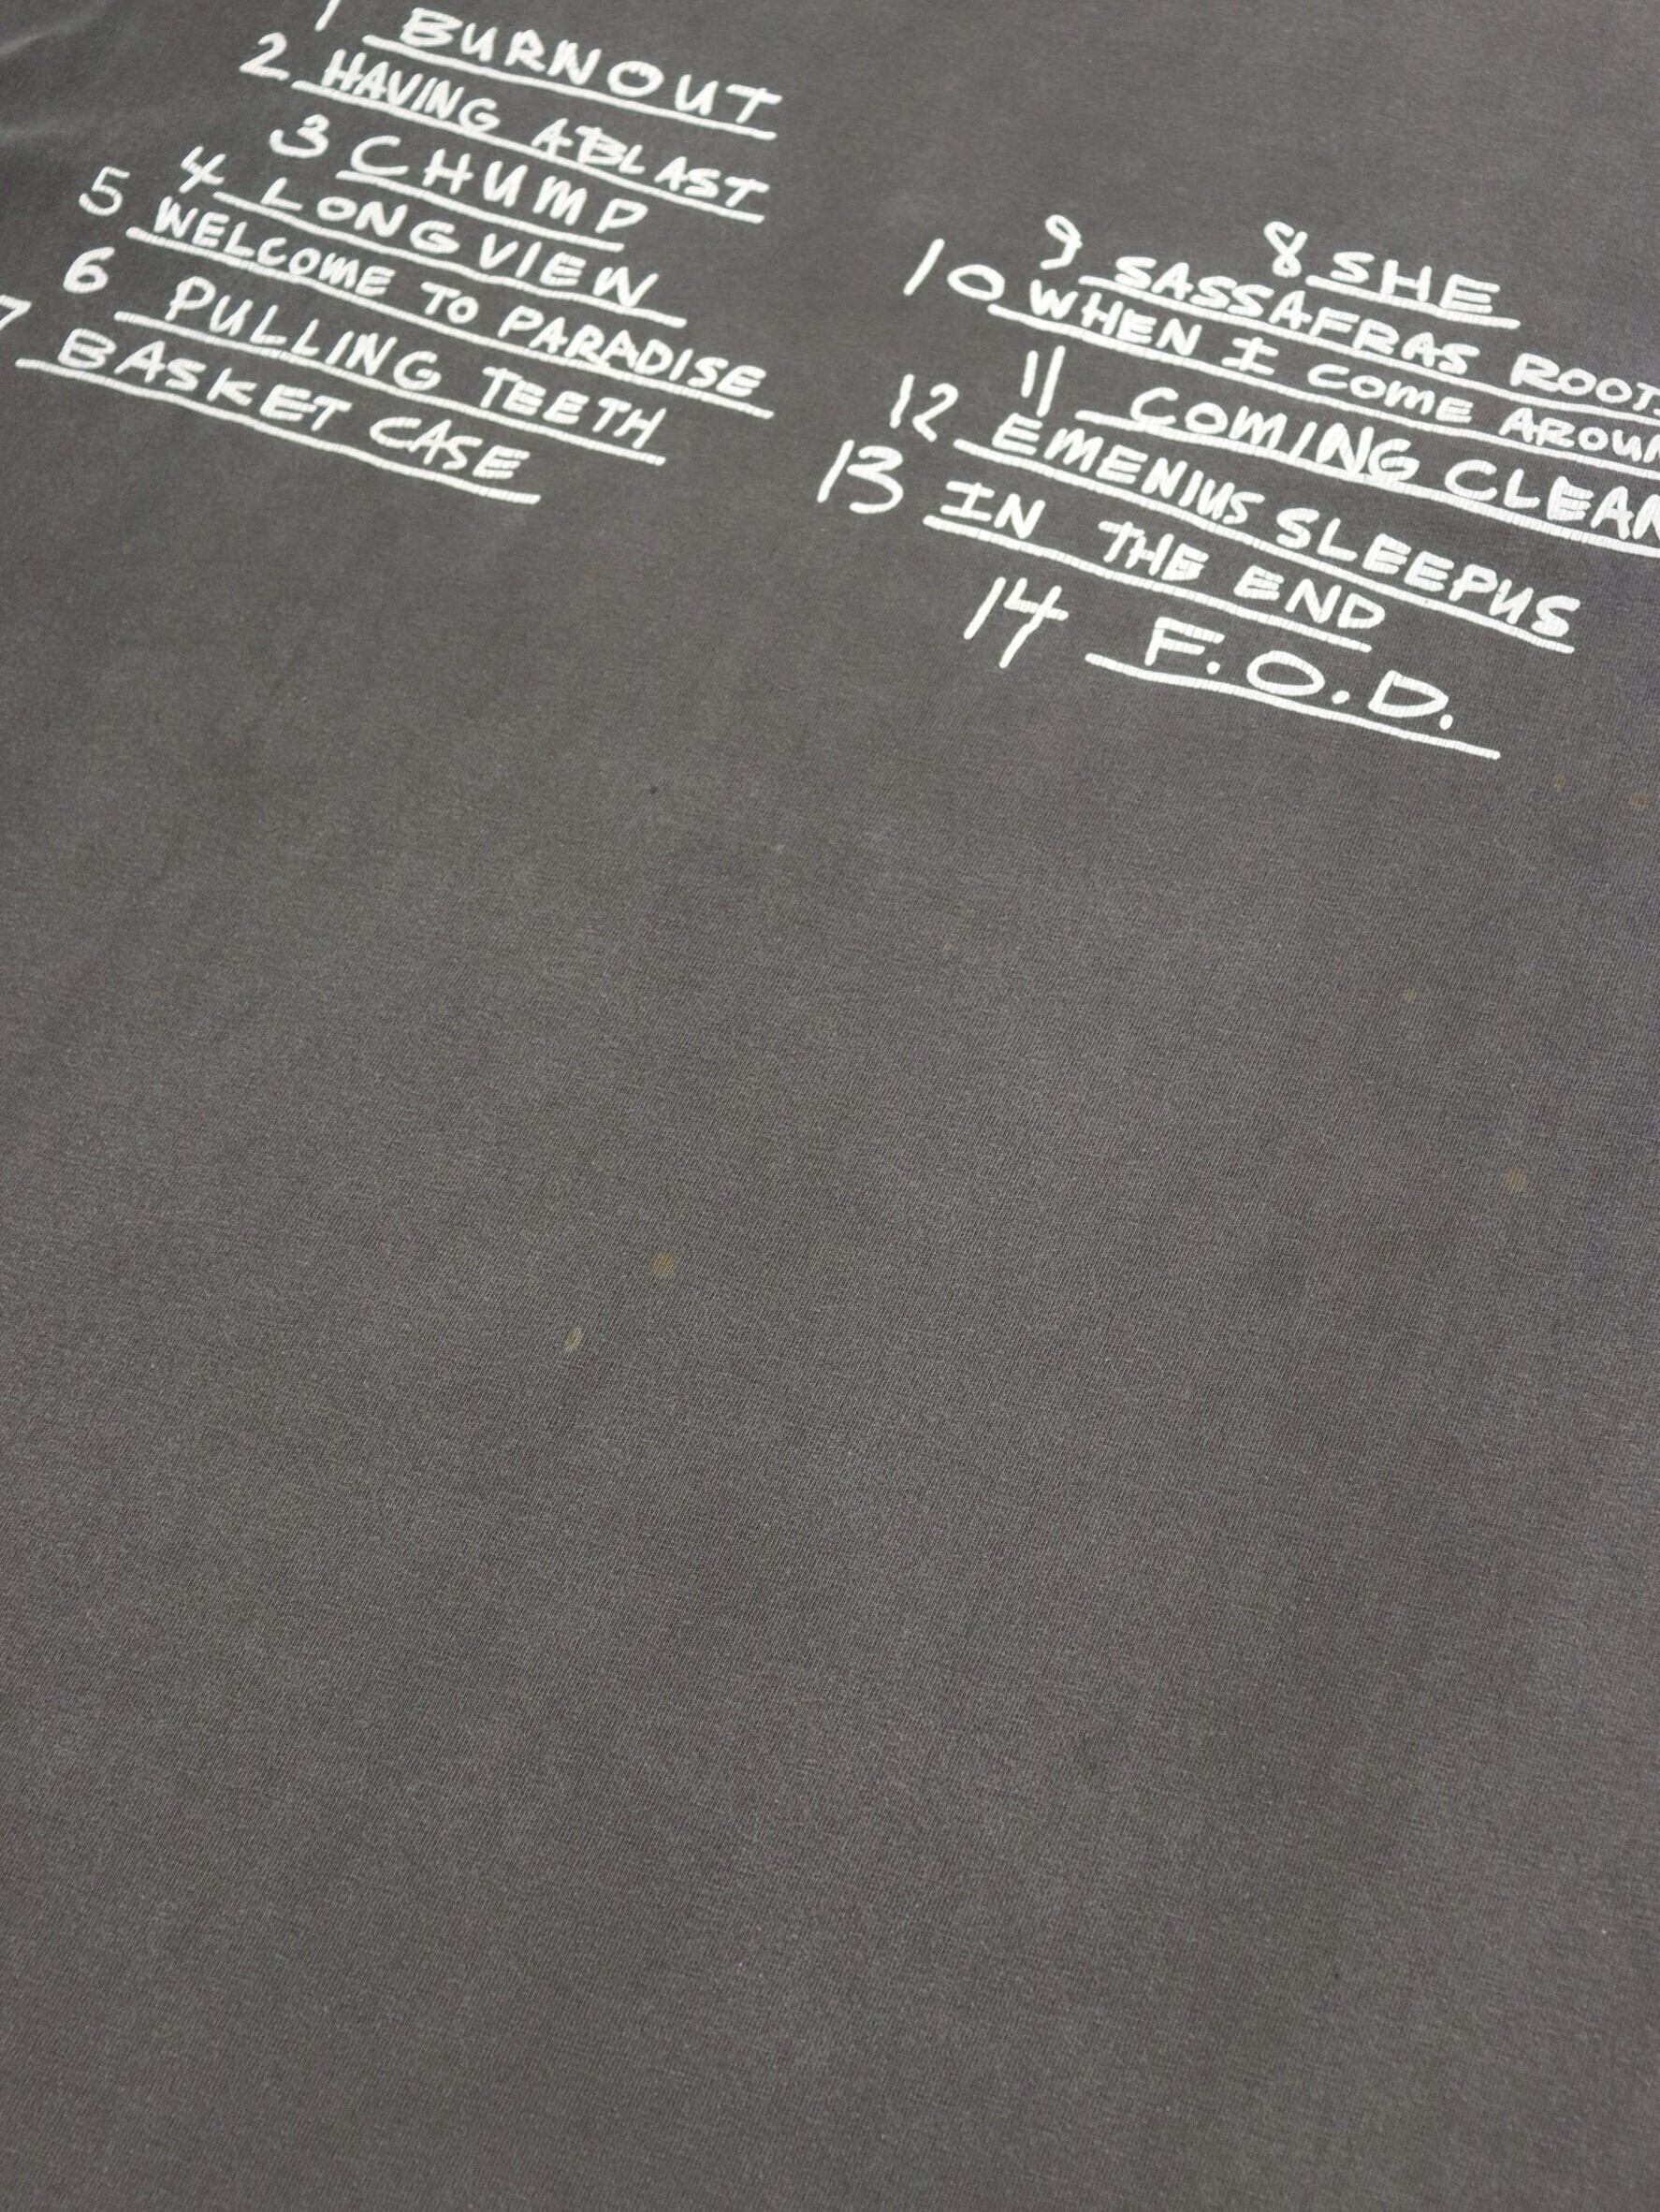 1 BURNOUT
2 HAVING A BLAST
3 CHUMP
4 LONGVIEW
5 WELCOME TO PARADISE
6 PULLING TEETH
7 BASKET CASE
8 SHE
9 SASSAFRAS ROOTS
10 WHEN I COME AROUN
11 COMING CLEAN
12 EMENIUS SLEEPUS
13 IN THE END
14 F.O.D.